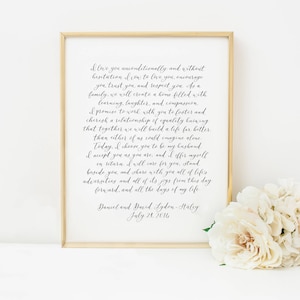 I love you unconditionally and without
hesitation. I vow to love you, encourage
you, trust you, and respect you. As a
family, we will create a home filled with
learning, laughter, and compassion.
I promise to work with you to foster and
cherish a relationship of equality knowing
that together we will build a life far better
than either of us could imagine alone.
Today, I choose you to be my husband.
I accept you as you are, and I offer myself
in return. I will care for you, stand
beside you and share with you all of life's
adversities and all of its joys from this day
forward, and all the days of my life.
Daniel and David Lydon-Staley
July 29, 2016